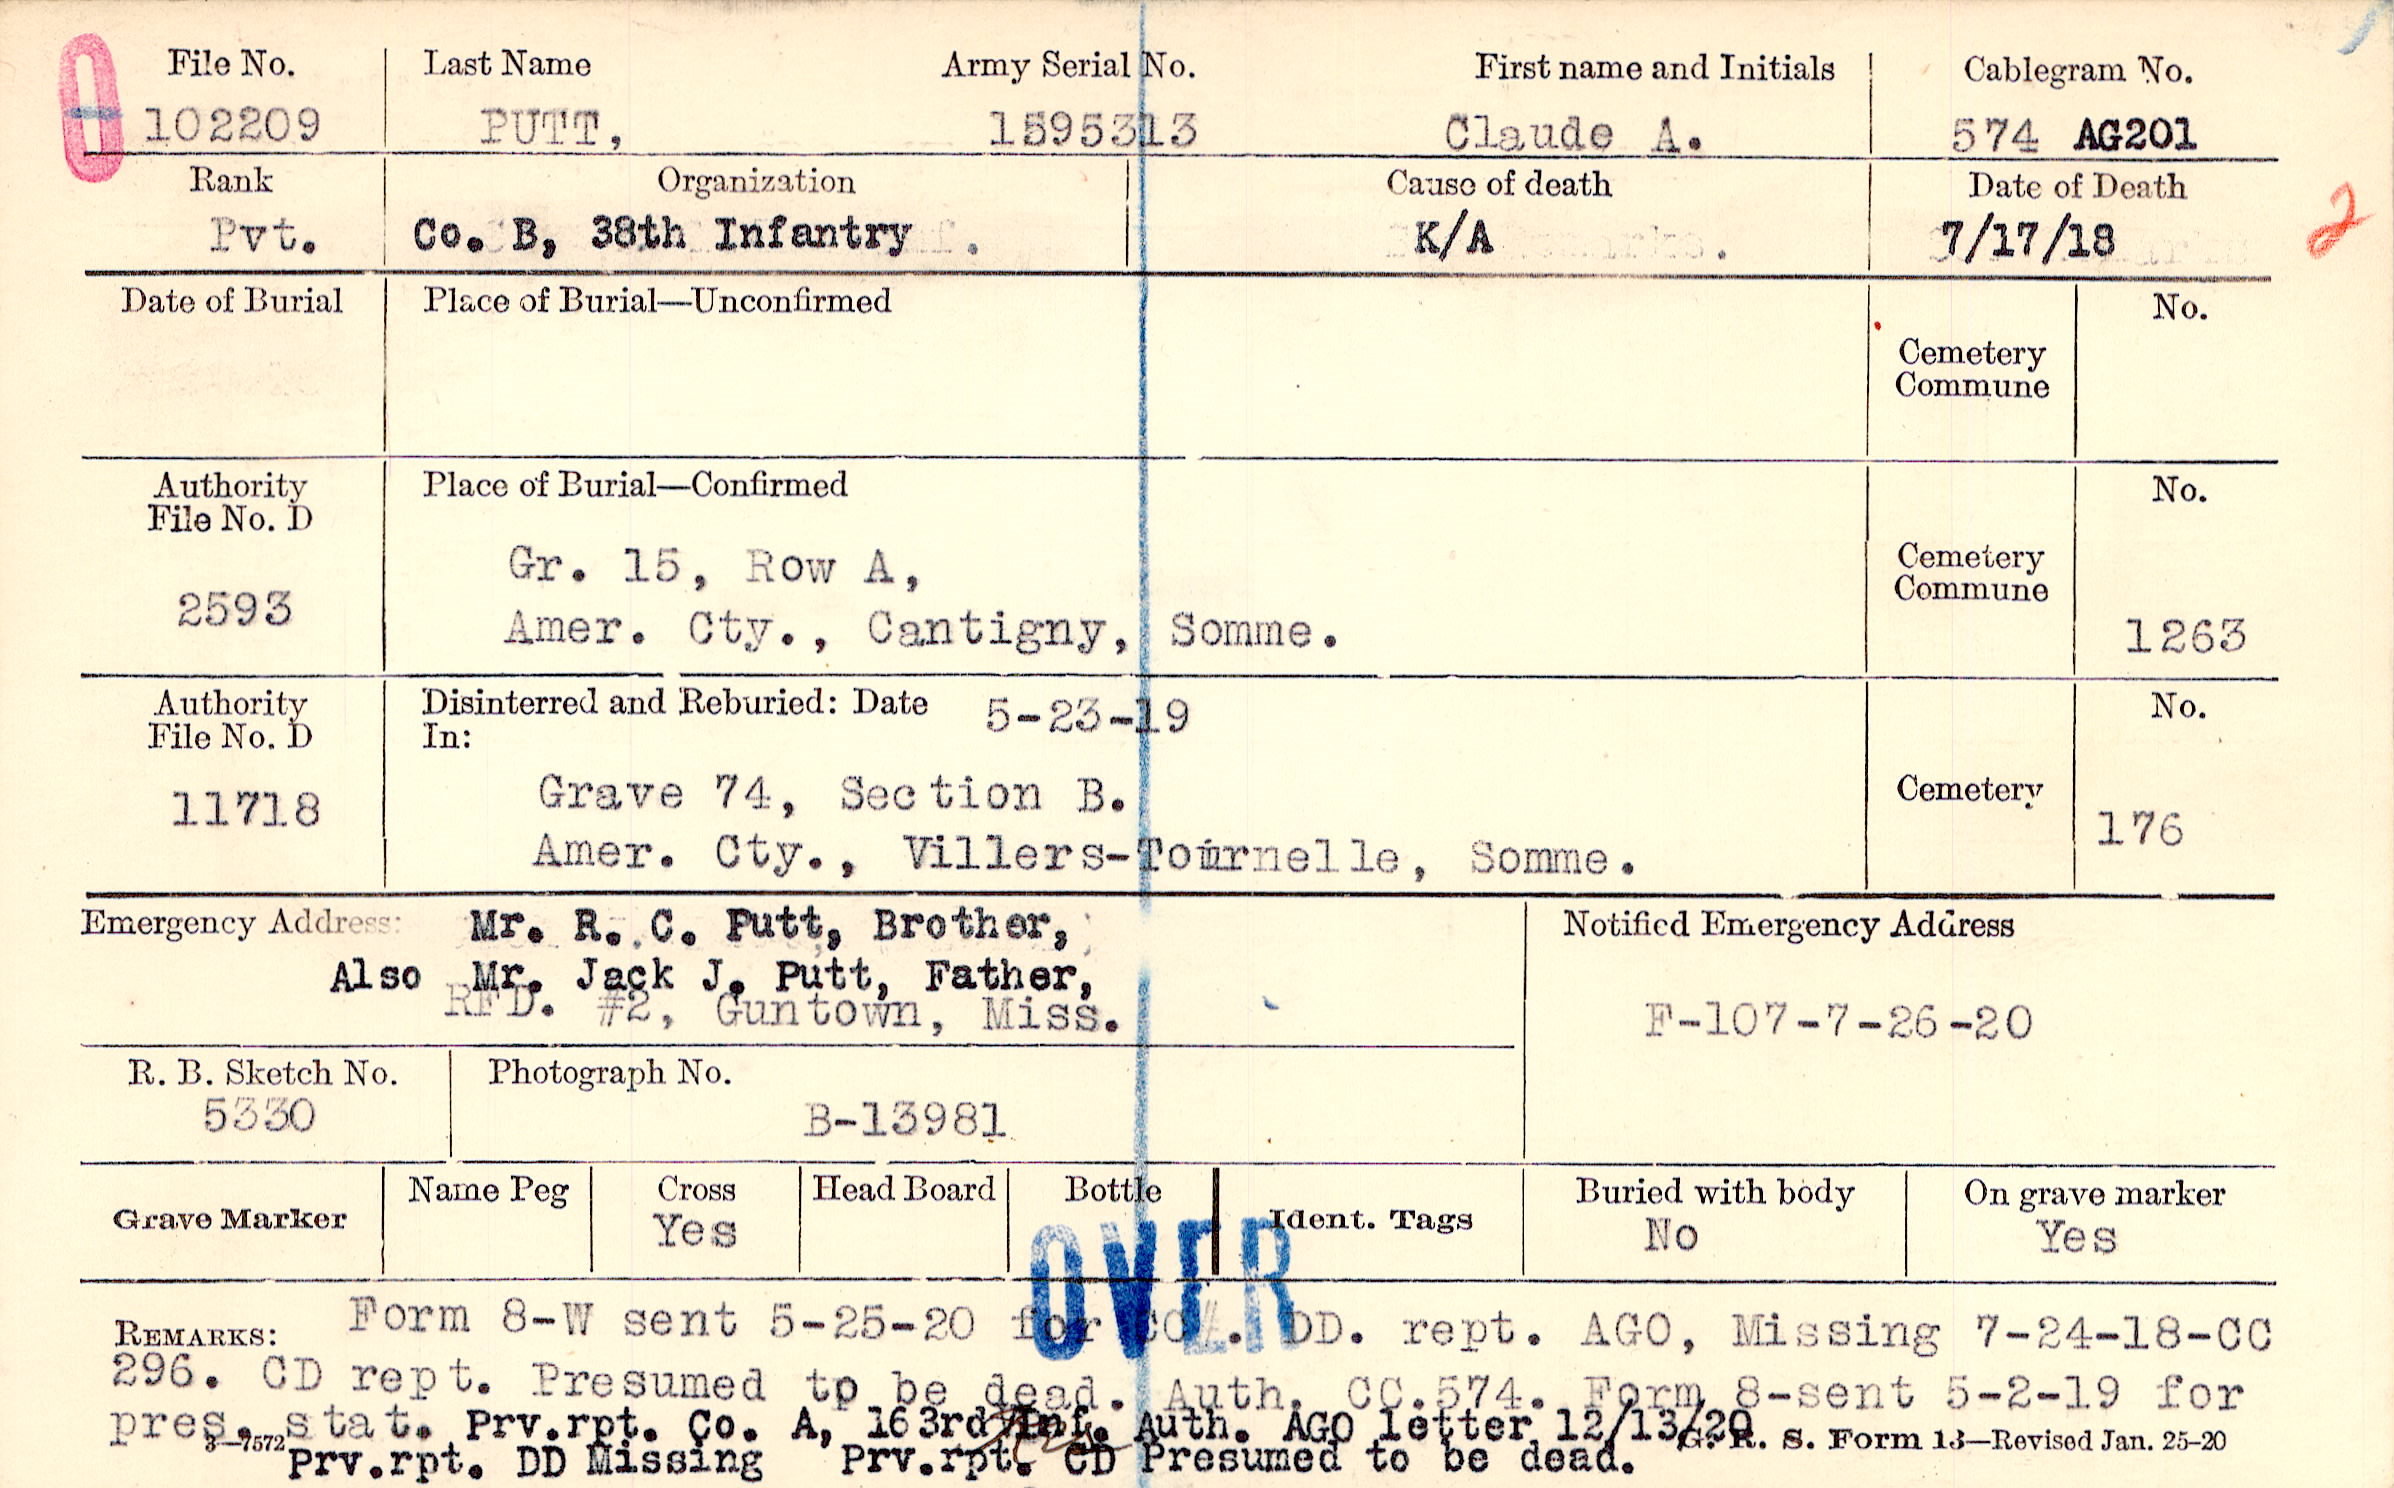 File No. Last Name Army Serial No. First name and Initials Cablegram No.
102209 PUTT, 1595313 Claude A. 574 AG201
Rank Organization Cause of death Date of Death
Pvt. Co. B, 38th Infantry K/A 7/17/18
2
Date of Burial Place of Burial—Unconfirmed No.
Cemetery
Commune
Authority Place of Burial—Confirmed No.
File No. D
Gr. 15, Row A, Cemetery
Commune
2593 Amer. Cty., Cantigny, Somme. 1263
Authority Disinterred and Reburied: Date 5-23-19 No.
File No. D In:
11718 Grave 74, Section B. Cemetery 176
Amer. Cty., Villers-Tournelle, Somme.
Emergency Address: Mr. R. C. Putt, Brother, Notified Emergency Address
Also Mr. Jack J. Putt, Father,
RFD. #2, Guntown, Miss. F-107-7-26-20
R. B. Sketch No. Photograph No.
5330 B-13981
Grave Marker Name Peg Cross Head Board Bottle Ident. Tags Buried with body On grave marker
Yes No Yes
OVER
REMARKS: Form 8-W sent 5-25-20 for CO. DD. rept. AGO, Missing 7-24-18-CC
296. CD rept. Presumed to be dead. Auth. CC.574. Form 8-sent 5-2-19 for
pres. stat. Prv.rpt. Co. A, 163rd Inf. Auth. AGO letter 12/13/20
3—7572 G. R. S. Form 13—Revised Jan. 25-20
Prv.rpt. DD Missing Prv.rpt. CD Presumed to be dead.